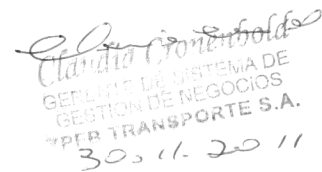 Claudia Cronenbold
GERENTE DE SISTEMA DE
GESTION DE NEGOCIOS
YPFB TRANSPORTE S.A.
30.11.2011